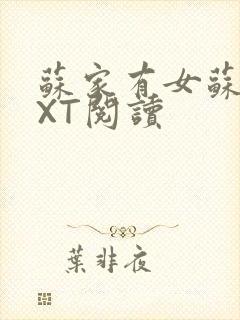 蘇家有女蘇
XT閱讀
葉非夜